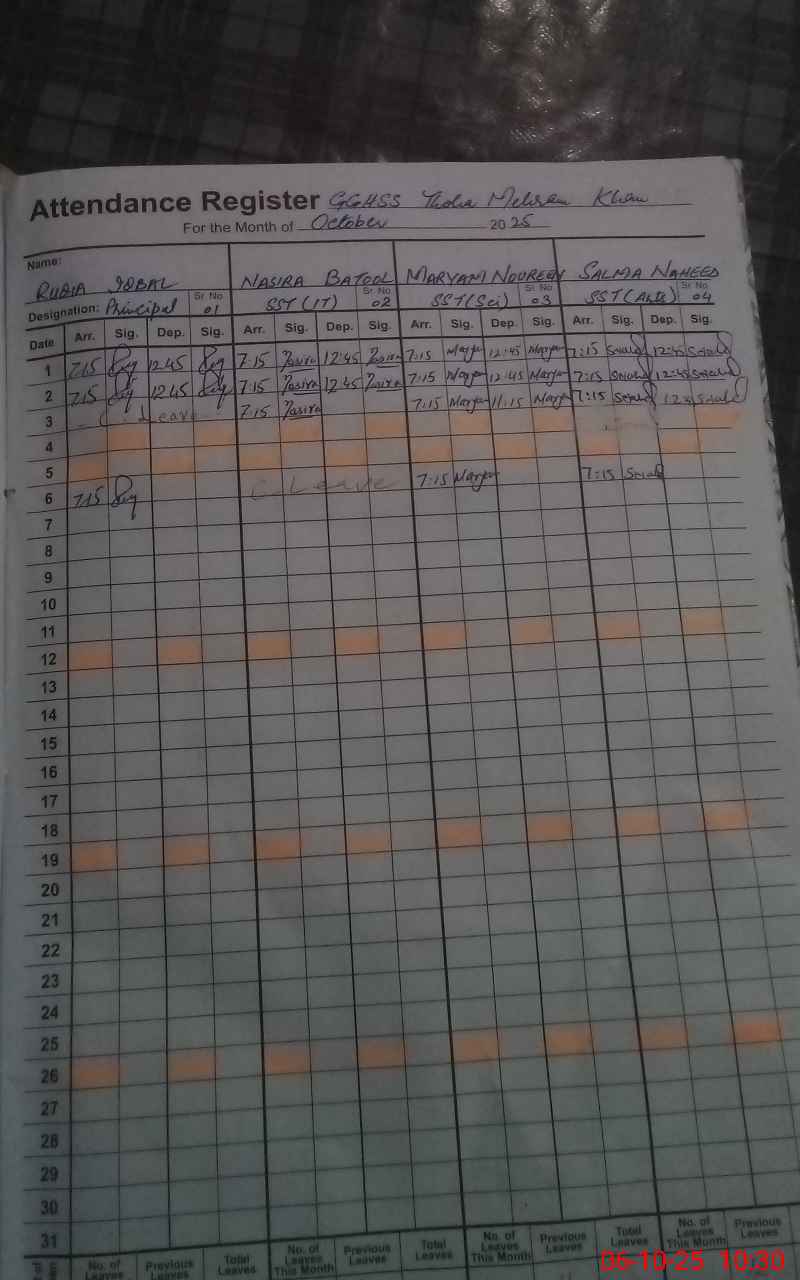 Attendance Register GGHSS Thoha Mehram Khan
For the Month of October 2025
Name:
RUBIA IQBAL NASIRA BATOOL MARYAM NOUREEN SALMA NAHEED
Designation: Principal Sr. No 01 SST (IT) Sr. No 02 SST (Sci) Sr. No 03 SST (Arts) Sr. No 04
Date Arr. Sig. Dep. Sig. Arr. Sig. Dep. Sig. Arr. Sig. Dep. Sig. Arr. Sig. Dep. Sig.
1 7:15 12:45 7:15 Nasira 12:45 Nasira 7:15 Maryam 12:45 Maryam 7:15 12:45
2 7:15 12:45 7:15 Nasira 12:45 Nasira 7:15 Maryam 12:45 Maryam 7:15 12:45
3 C. Leave 7:15 Nasira 7:15 Maryam 11:15 Maryam 7:15
4
5
6 7:15 C. Leave 7:15 Maryam 7:15
7
8
9
10
11
12
13
14
15
16
17
18
19
20
21
22
23
24
25
26
27
28
29
30
31
No. of Leaves Previous Leaves Total Leaves No. of Leaves This Month Previous Leaves Total Leaves No. of Leaves This Month Previous Leaves Total Leaves No. of Leaves This Month Previous Leaves
06-10-25 10:30